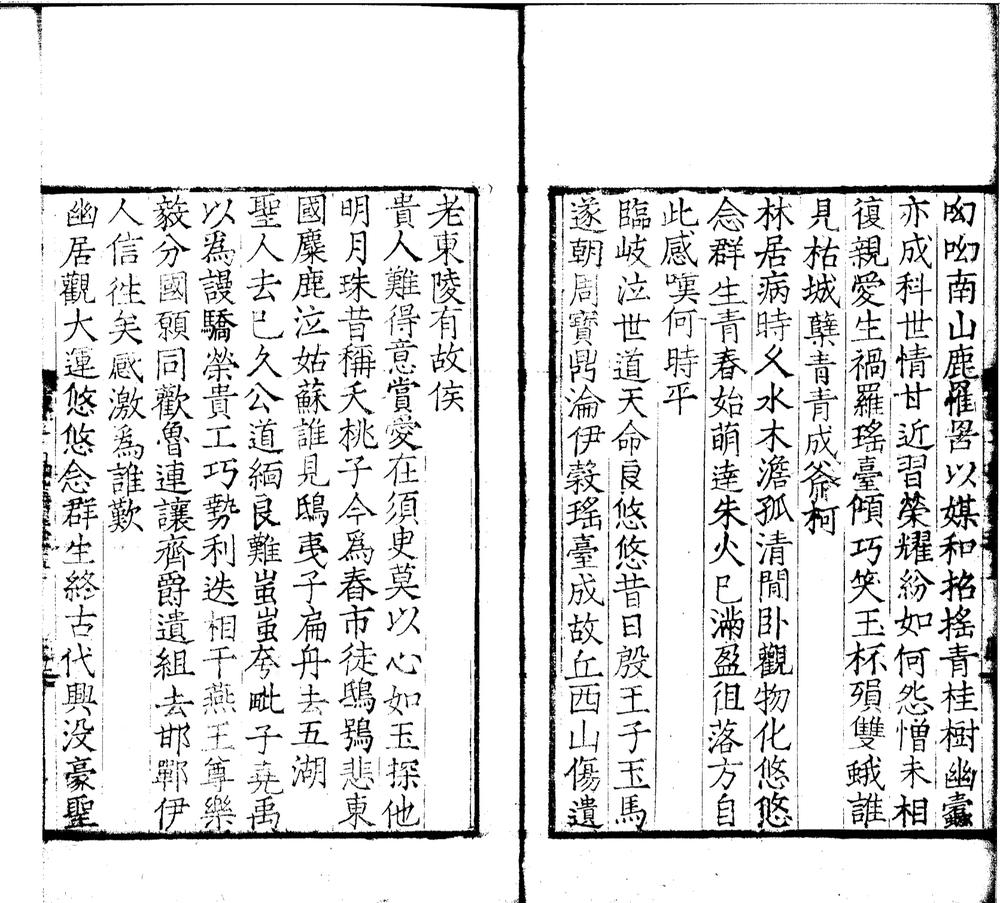 呦呦南山鹿罹罟以媒和招搖青桂樹幽蠹
亦成科世情甘近習榮耀紛如何怨憎未相
復親愛生禍羅瑤臺傾巧笑玉杯殞雙蛾誰
見枯城蘖青青成斧柯
林居病時久水木澹孤清閒卧觀物化悠悠
念群生青春始萌達朱火已滿盈徂落方自
此感嘆何時平
臨岐泣世道天命良悠悠昔日殷王子玉馬
遂朝周寶鼎淪伊榖瑤臺成故丘西山傷遺
老東陵有故侯
貴人難得意賞愛在須臾莫以心如玉探他
明月珠昔稱夭桃子今為舂市徒鴟鴞悲東
國麋鹿泣姑蘇誰見鴟夷子扁舟去五湖
聖人去已久公道緬良難蚩蚩夸毗子堯禹
以為謾驕榮貴工巧勢利迭相干燕王尊樂
毅分國願同歡魯連讓齊爵遺組去邯鄲伊
人信徃矣感激為誰歎
幽居觀大運悠悠念群生終古代興没豪聖